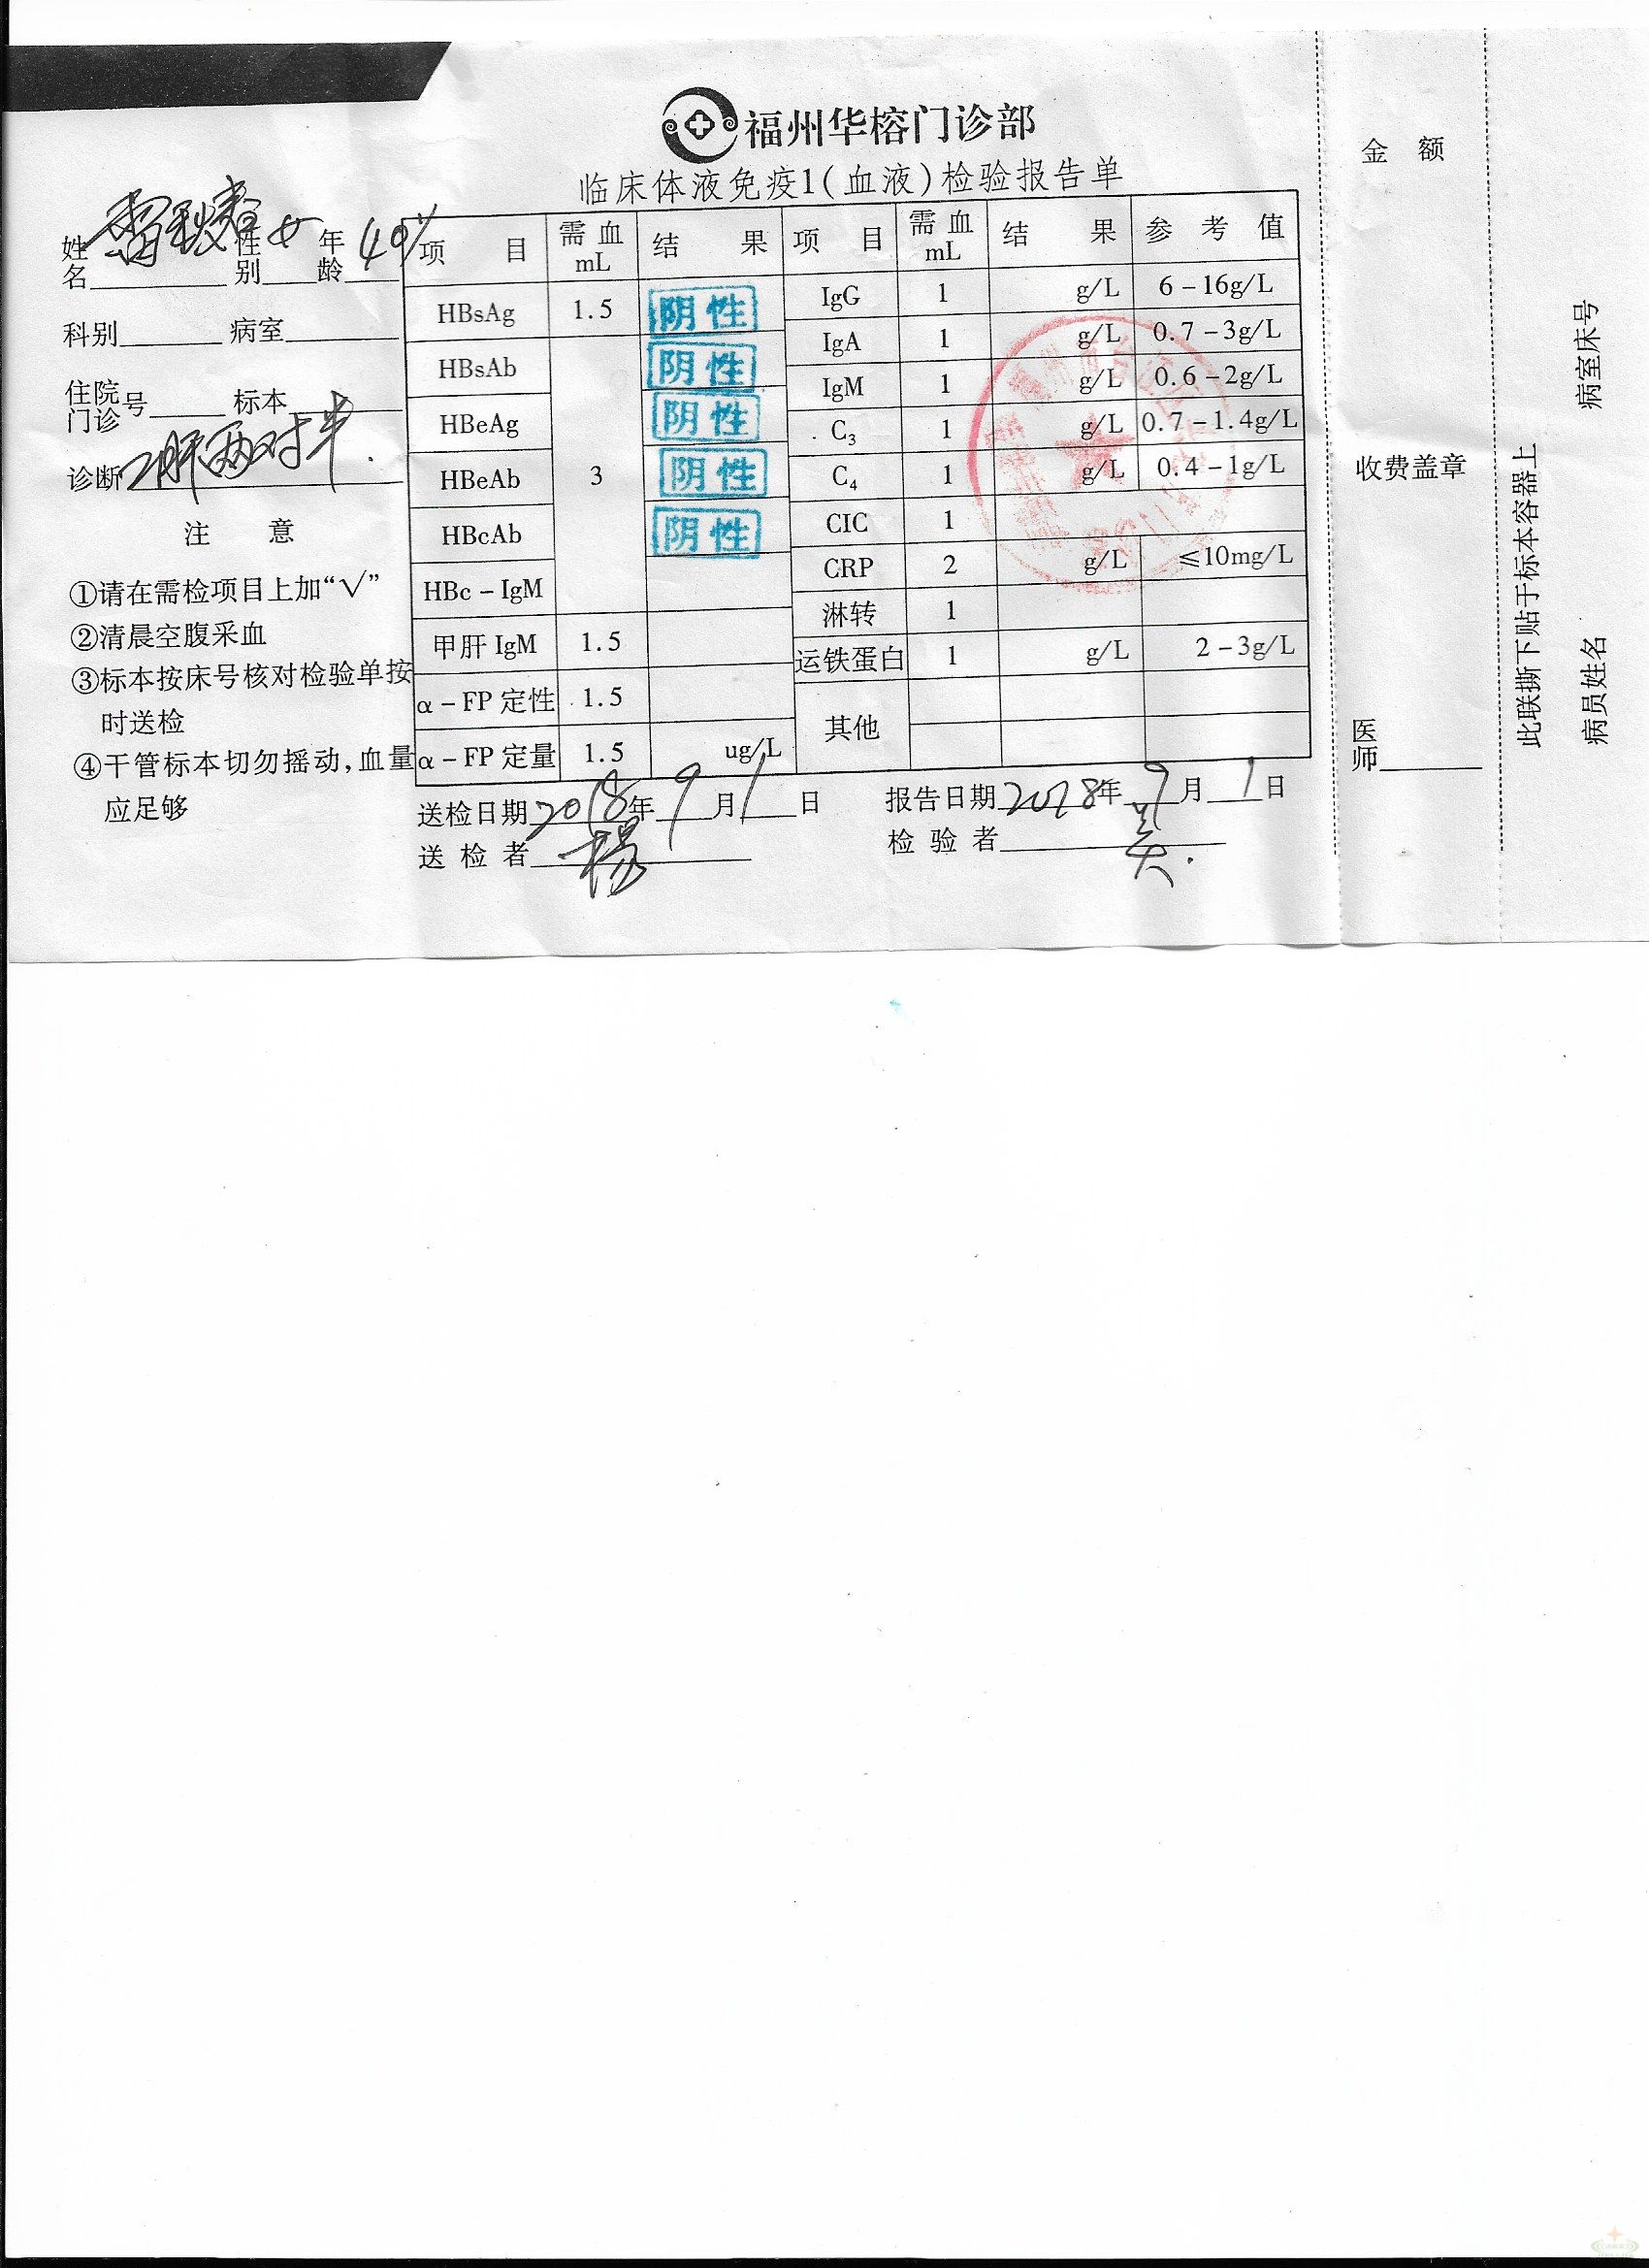 福州华榕门诊部
临床体液免疫1(血液)检验报告单
姓名 性别 女 年龄 40岁
科别 病室
住院门诊号 标本
诊断 乙肝两对半.
注 意
①请在需检项目上加“√”
②清晨空腹采血
③标本按床号核对检验单按
时送检
④干管标本切勿摇动,血量
应足够
项 目 需血 mL 结 果 项 目 需血 mL 结 果 参 考 值
HBsAg 1.5 阴性 IgG 1 g/L 6-16g/L
HBsAb 阴性 IgA 1 g/L 0.7-3g/L
HBeAg 阴性 IgM 1 g/L 0.6-2g/L
HBeAb 3 阴性 C3 1 g/L 0.7-1.4g/L
HBcAb 阴性 C4 1 g/L 0.4-1g/L
HBc-IgM CIC 1
甲肝 IgM 1.5 CRP 2 g/L ≤10mg/L
α-FP 定性 1.5 淋转 1
α-FP 定量 1.5 ug/L 运铁蛋白 1 g/L 2-3g/L
其他
送检日期 2018年 9月 1日 报告日期 2018年 9月 1日
送 检 者 杨 检 验 者 吴.
金 额
收费盖章
医师
此联撕下贴于标本容器上
病室床号
病员姓名